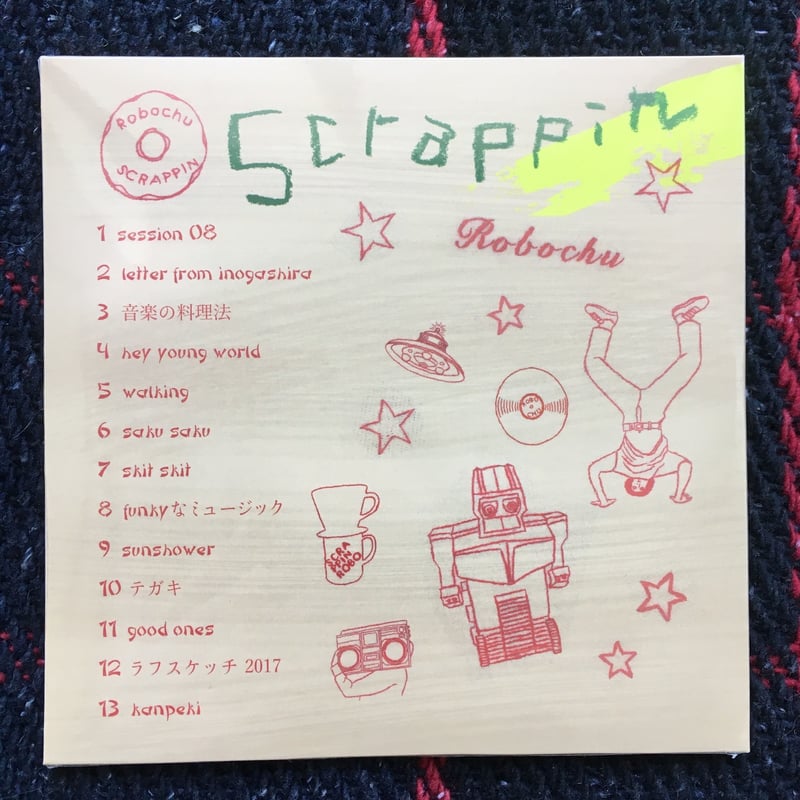 Robochu
SCRAPPIN
Scrappin
Robochu
1 session 08
2 letter from inogashira
3 音楽の料理法
4 hey young world
5 walking
6 saku saku
7 skit skit
8 funkyなミュージック
9 sunshower
10 テガキ
11 good ones
12 ラフスケッチ 2017
13 kanpeki
ROBO
CHU
SCRA
PPIN
ROBO